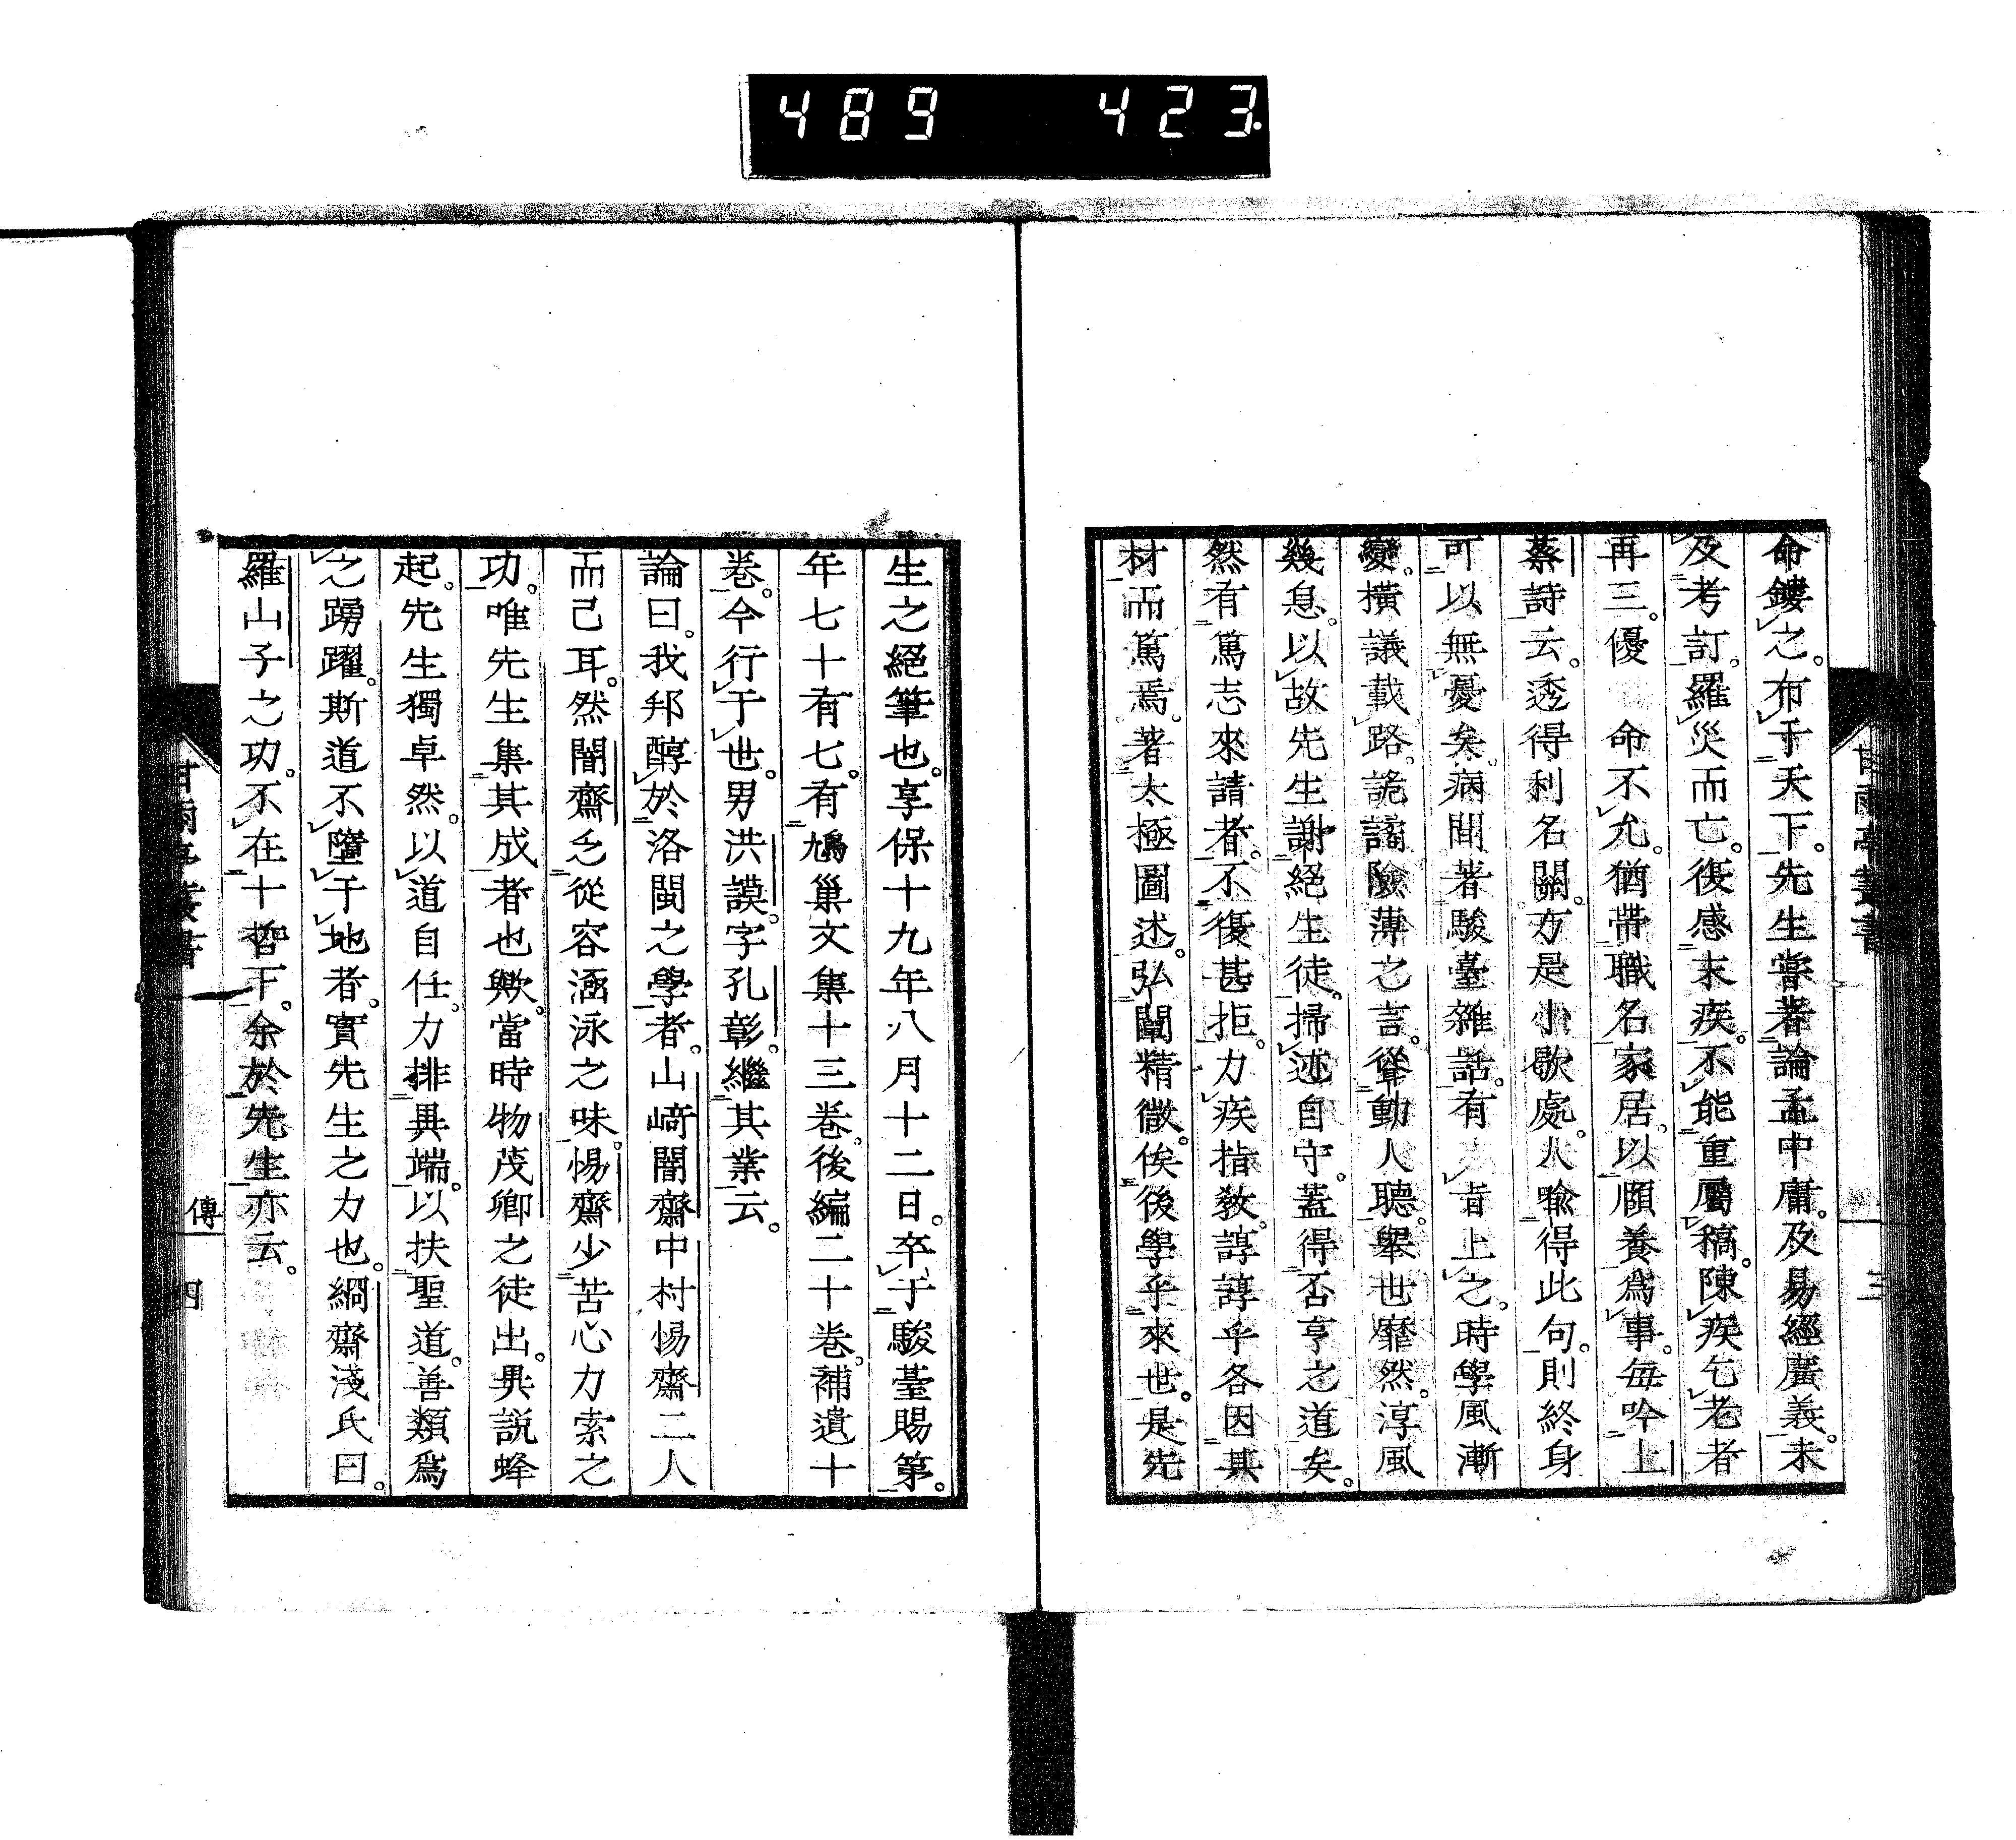 489 423
命鏤之。布于天下。先生嘗著論孟中庸。及易經廣義。未
及考訂。羅災而亡。復感末疾。不能重屬稿。陳疾乞老者
再三。優 命不允。猶帶職名家居。以頤養爲事。每吟上
蔡詩云。透得利名關。方是小歇處。人喩得此句。則終身
可以無憂矣。病間著駿臺雜話。有 旨上之。時學風漸
變。橫議載路。詭譎險薄之言。聳動人聽。擧世靡然。淳風
幾息。以故先生謝絕生徒。掃迹自守。蓋得否亨之道矣。
然有篤志來請者。不復甚拒。力疾指敎。諄諄乎各因其
材而篤焉。著太極圖述。弘闡精微。俟後學乎來世。是先
生之絕筆也。享保十九年八月十二日。卒于駿臺賜第。
年七十有七。有鳩巢文集十三卷。後編二十卷。補遺十
卷。今行于世。男洪謨。字孔彰。繼其業云。
論曰。我邦醇於洛閩之學者。山﨑闇齋中村惕齋二人
而己耳。然闇齋乏從容涵泳之味。惕齋少苦心力索之
功。唯先生集其成者也歟。當時物茂卿之徒出。異説蜂
起。先生獨卓然。以道自任。力排異端。以扶聖道。善類爲
之踴躍。斯道不墮于地者。實先生之力也。絅齋淺氏曰。
羅山子之功。不在十哲下。余於先生亦云。
甘雨亭叢書
傳
四